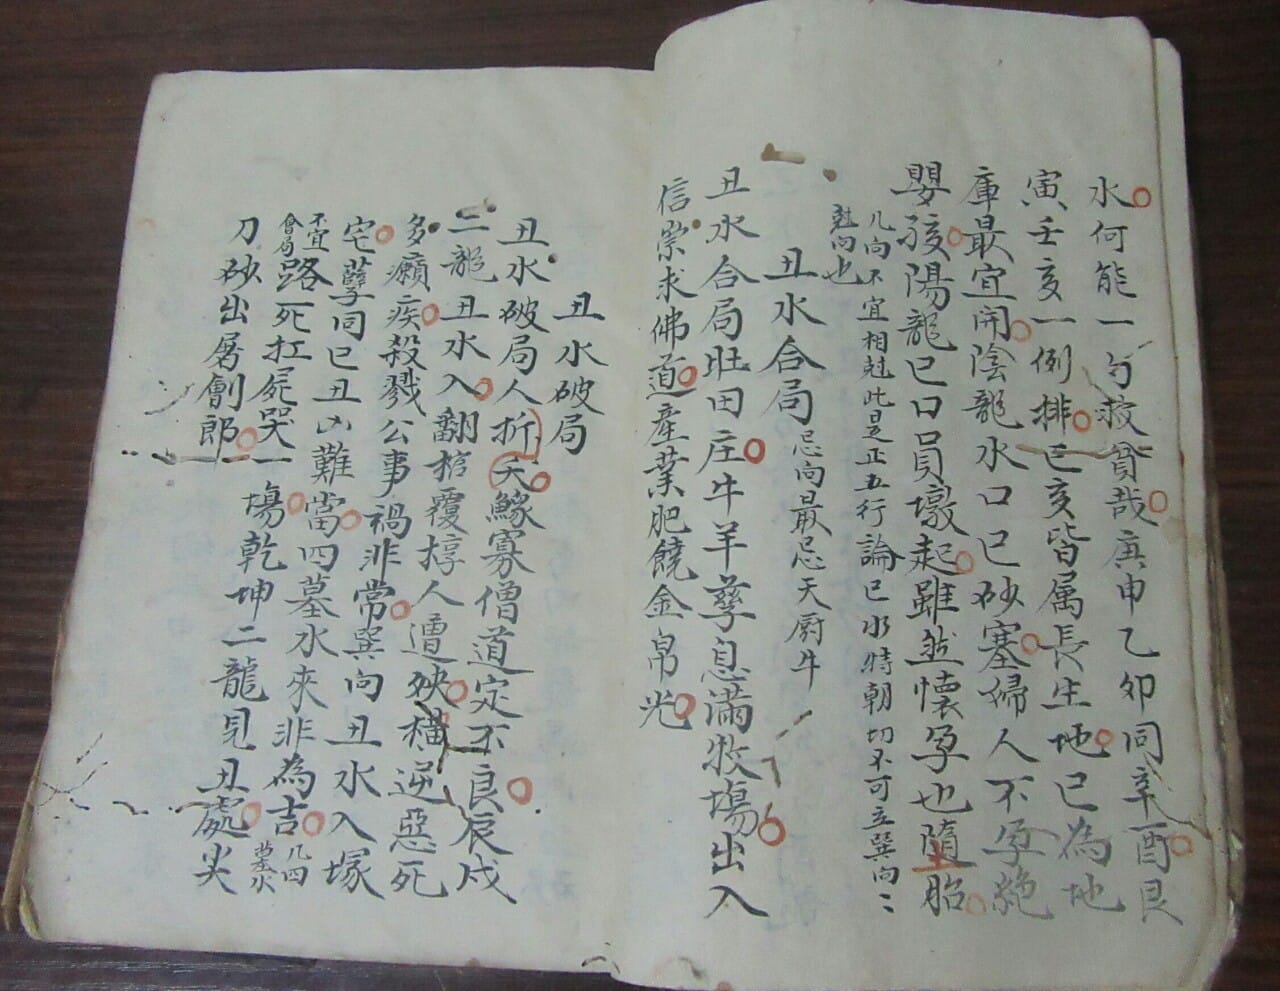 水何能一勺救貧哉庚申乙卯同辛酉艮
寅壬亥一例排巳亥皆属長生地巳為地
庫最宜開陰龍水口巳砂塞婦人不孕絶
嬰孩陽龍巳口員墩起雖然懷孕也隨胎
几向不宜相尅此是正五行論巳水特朝切不可立巽向〻
尅向也
丑水合局 忌向最忌天廚牛
丑水合局旺田庄牛羊孳息满牧塲出入
信崇求佛道產業肥饒金帛光
丑水破局
丑水破局人折夭鰥寡僧道定不良辰戌
二龍丑水入翻棺覆椁人遭殃横逆惡死
多癩疾殺戮公事禍非常巽向丑水入塚
宅孽同巳丑凶難當四墓水來非為吉 几四墓水
不宜會局 路死扛屍哭一塲乾坤二龍見丑處尖
刀砂出屠劊郎